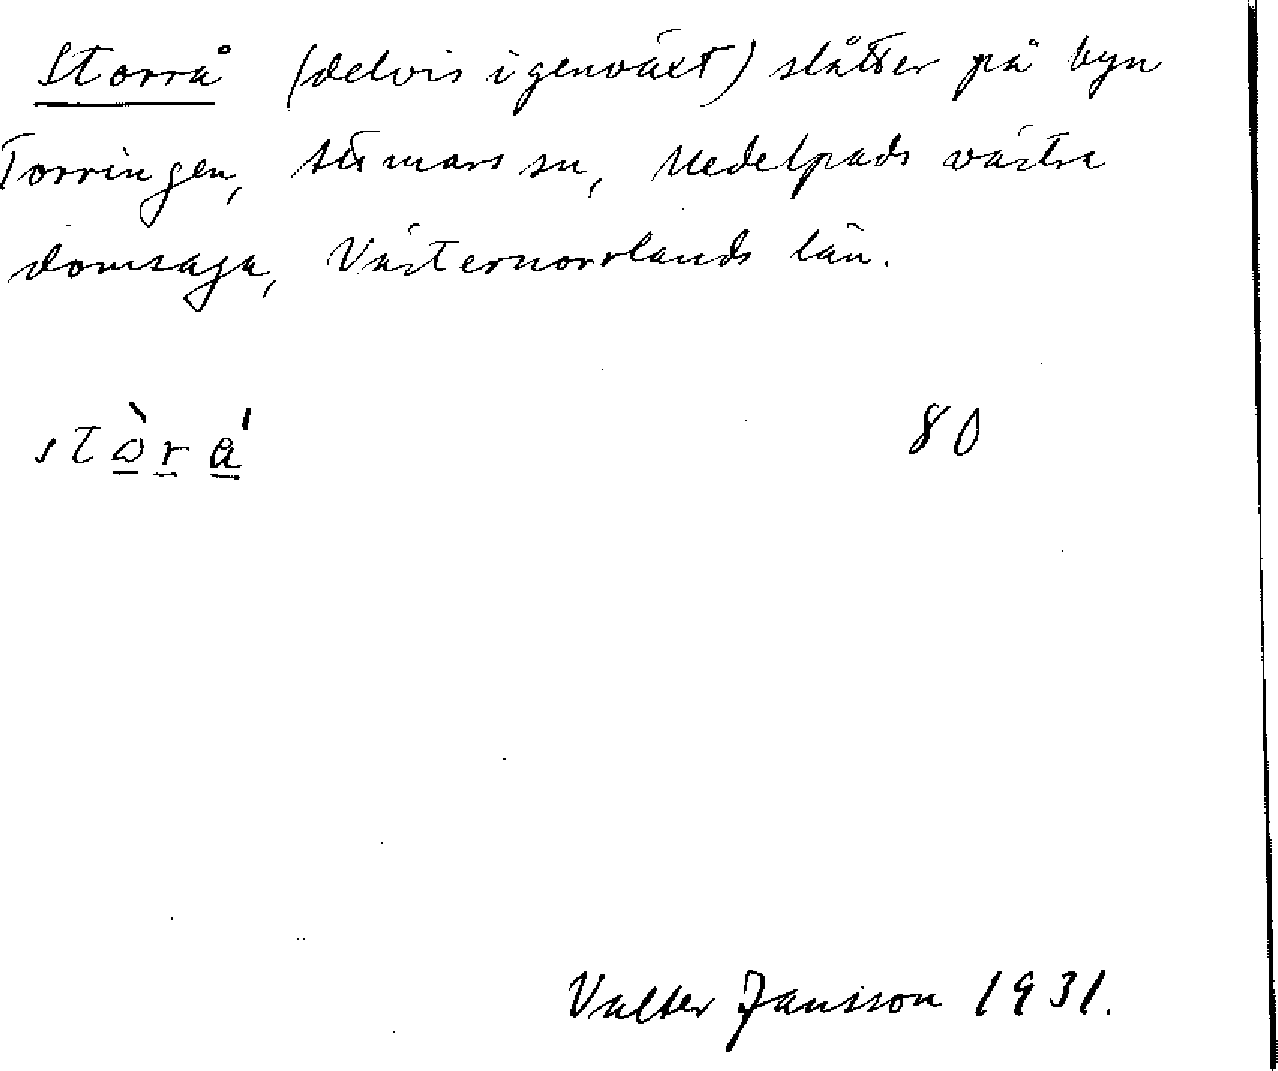 Storrå (delvis igenväxt) slåtter på byn
Torringen, Attmars sn, Medelpads västra
domsaga, Västernorrlands län.
stòrå' 80
Valter Jansson 1931.